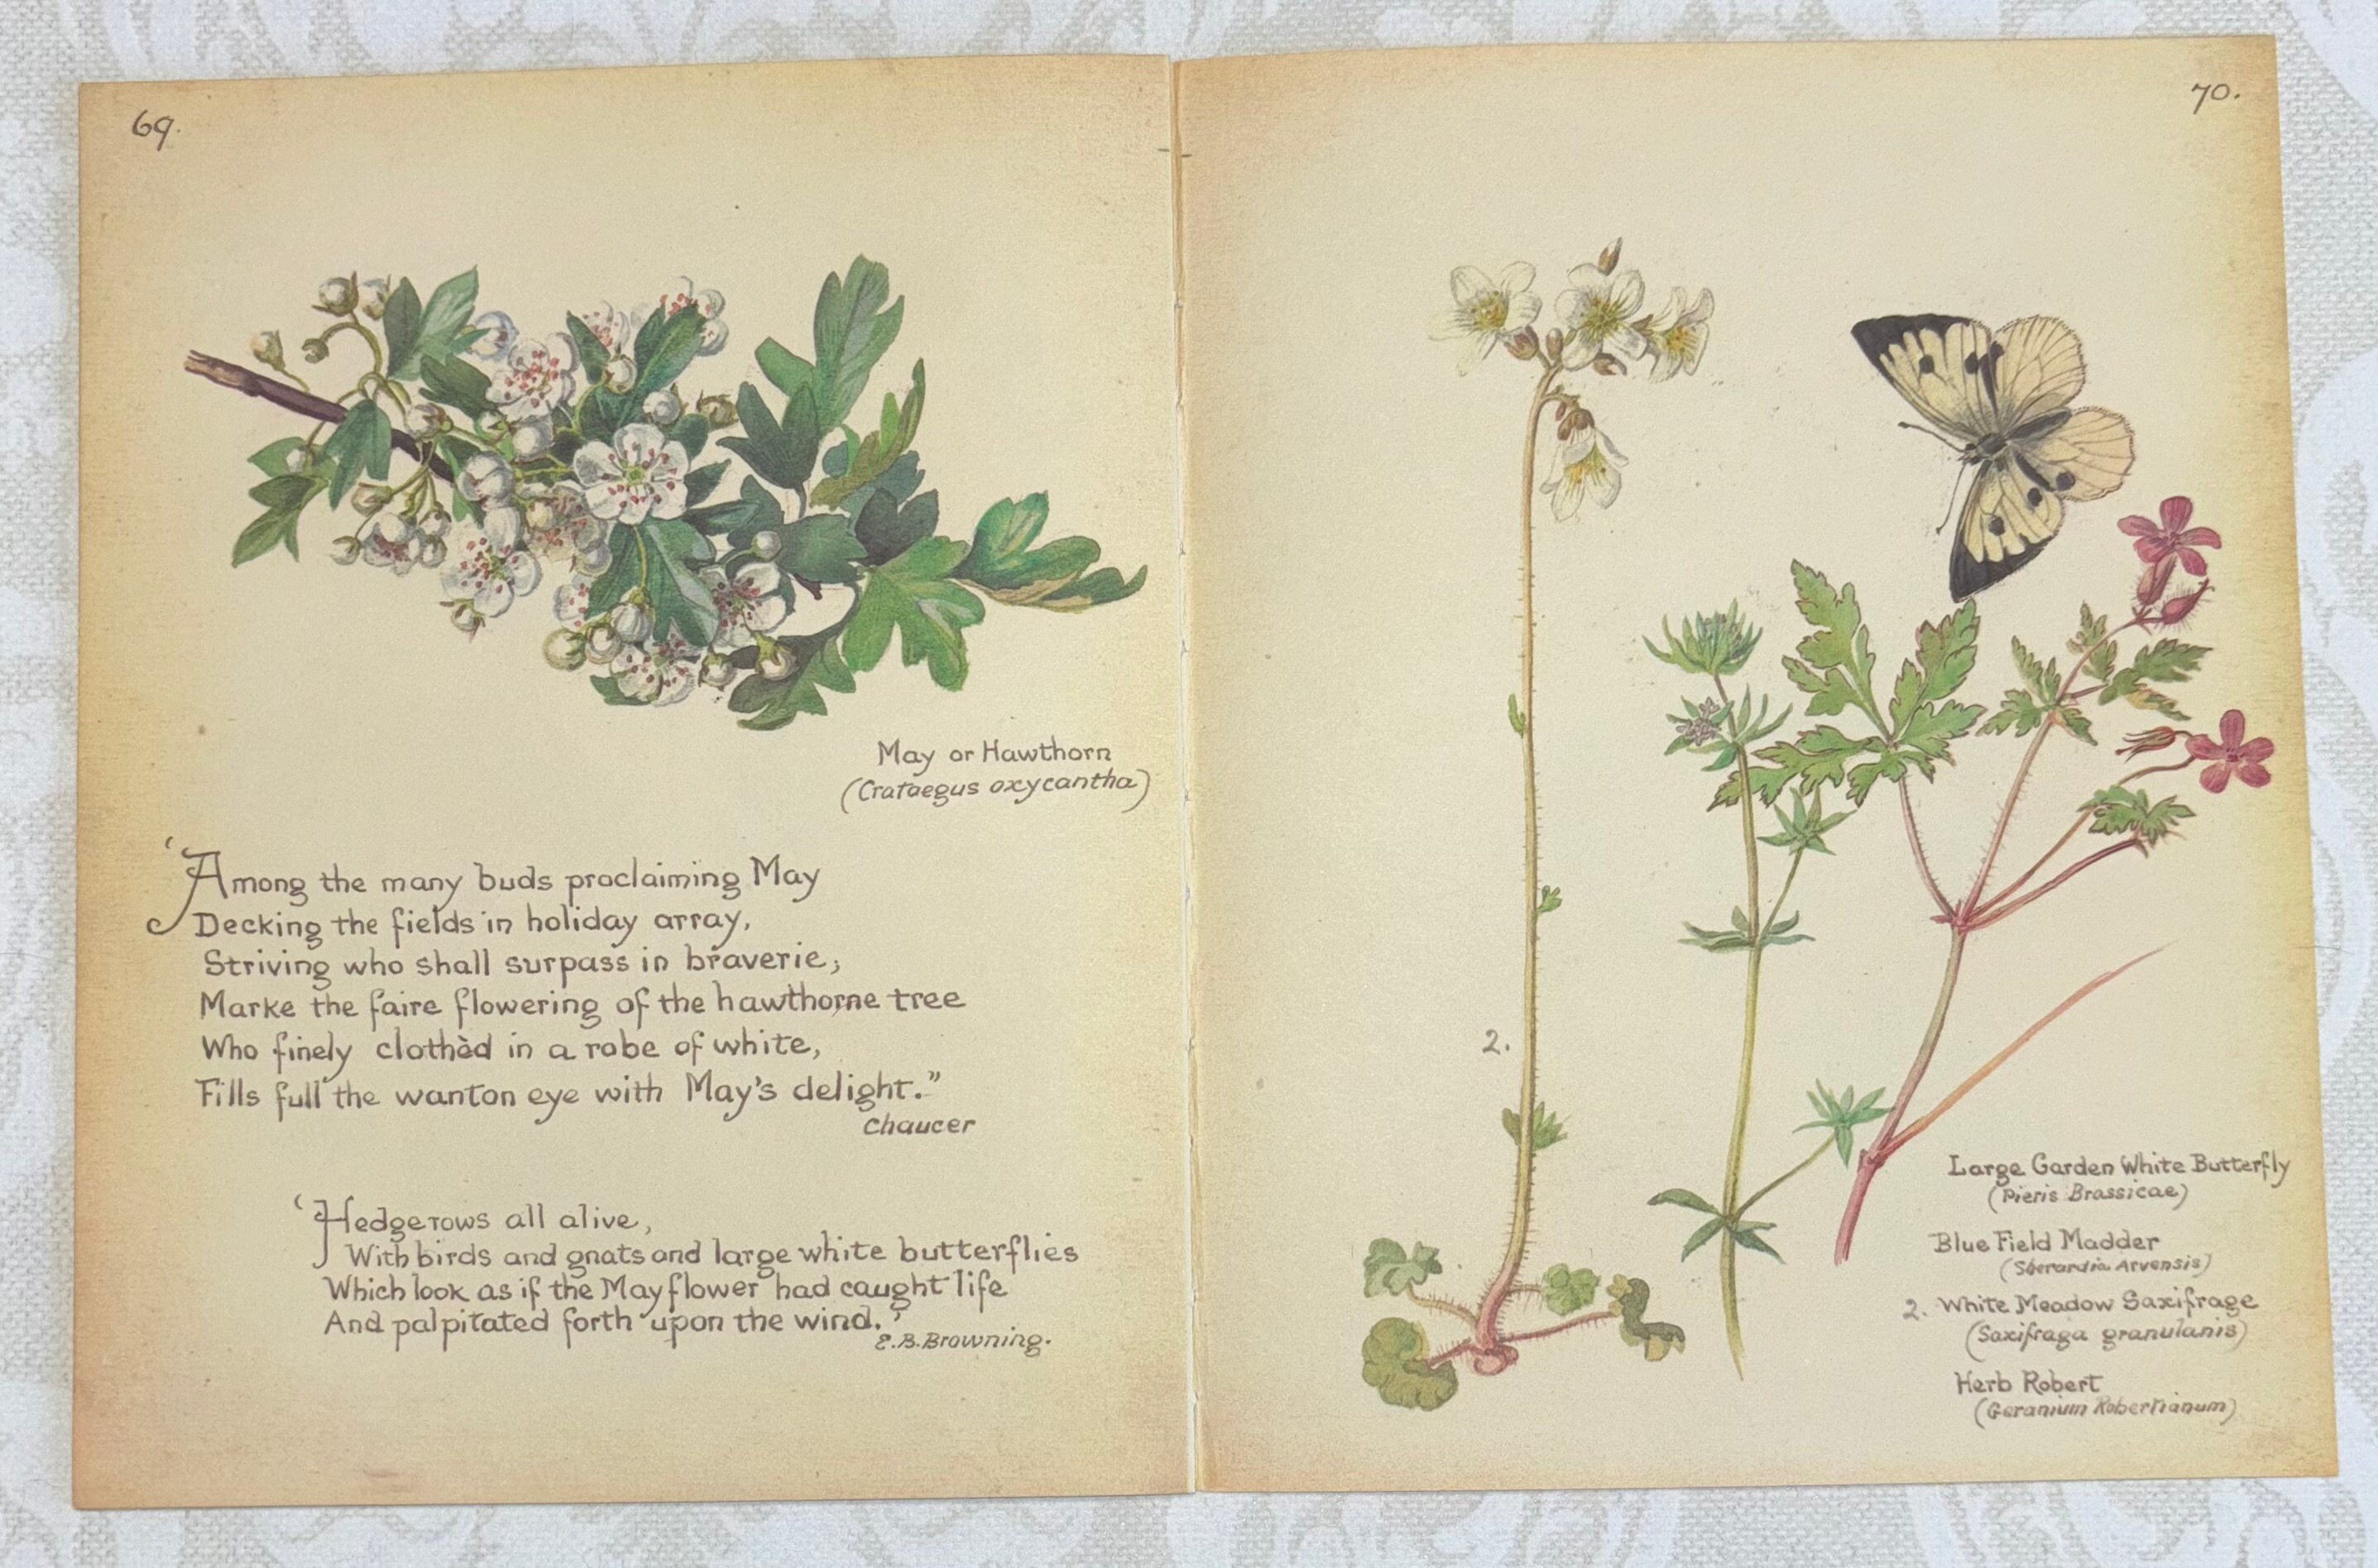 69.
May or Hawthorn
(Crataegus oxycantha)
'Among the many buds proclaiming May
Decking the fields in holiday array,
Striving who shall surpass in braverie,
Marke the faire flowering of the hawthorne tree
Who finely clothèd in a robe of white,
Fills full the wanton eye with May's delight."
Chaucer
'Hedgerows all alive,
With birds and gnats and large white butterflies
Which look as if the Mayflower had caught life
And palpitated forth upon the wind.'
E.B.Browning.
70.
2.
Large Garden White Butterfly
(Pieris Brassicae)
Blue Field Madder
(Sherardia Arvensis)
2. White Meadow Saxifrage
(Saxifraga granulanis)
Herb Robert
(Geranium Robertianum)